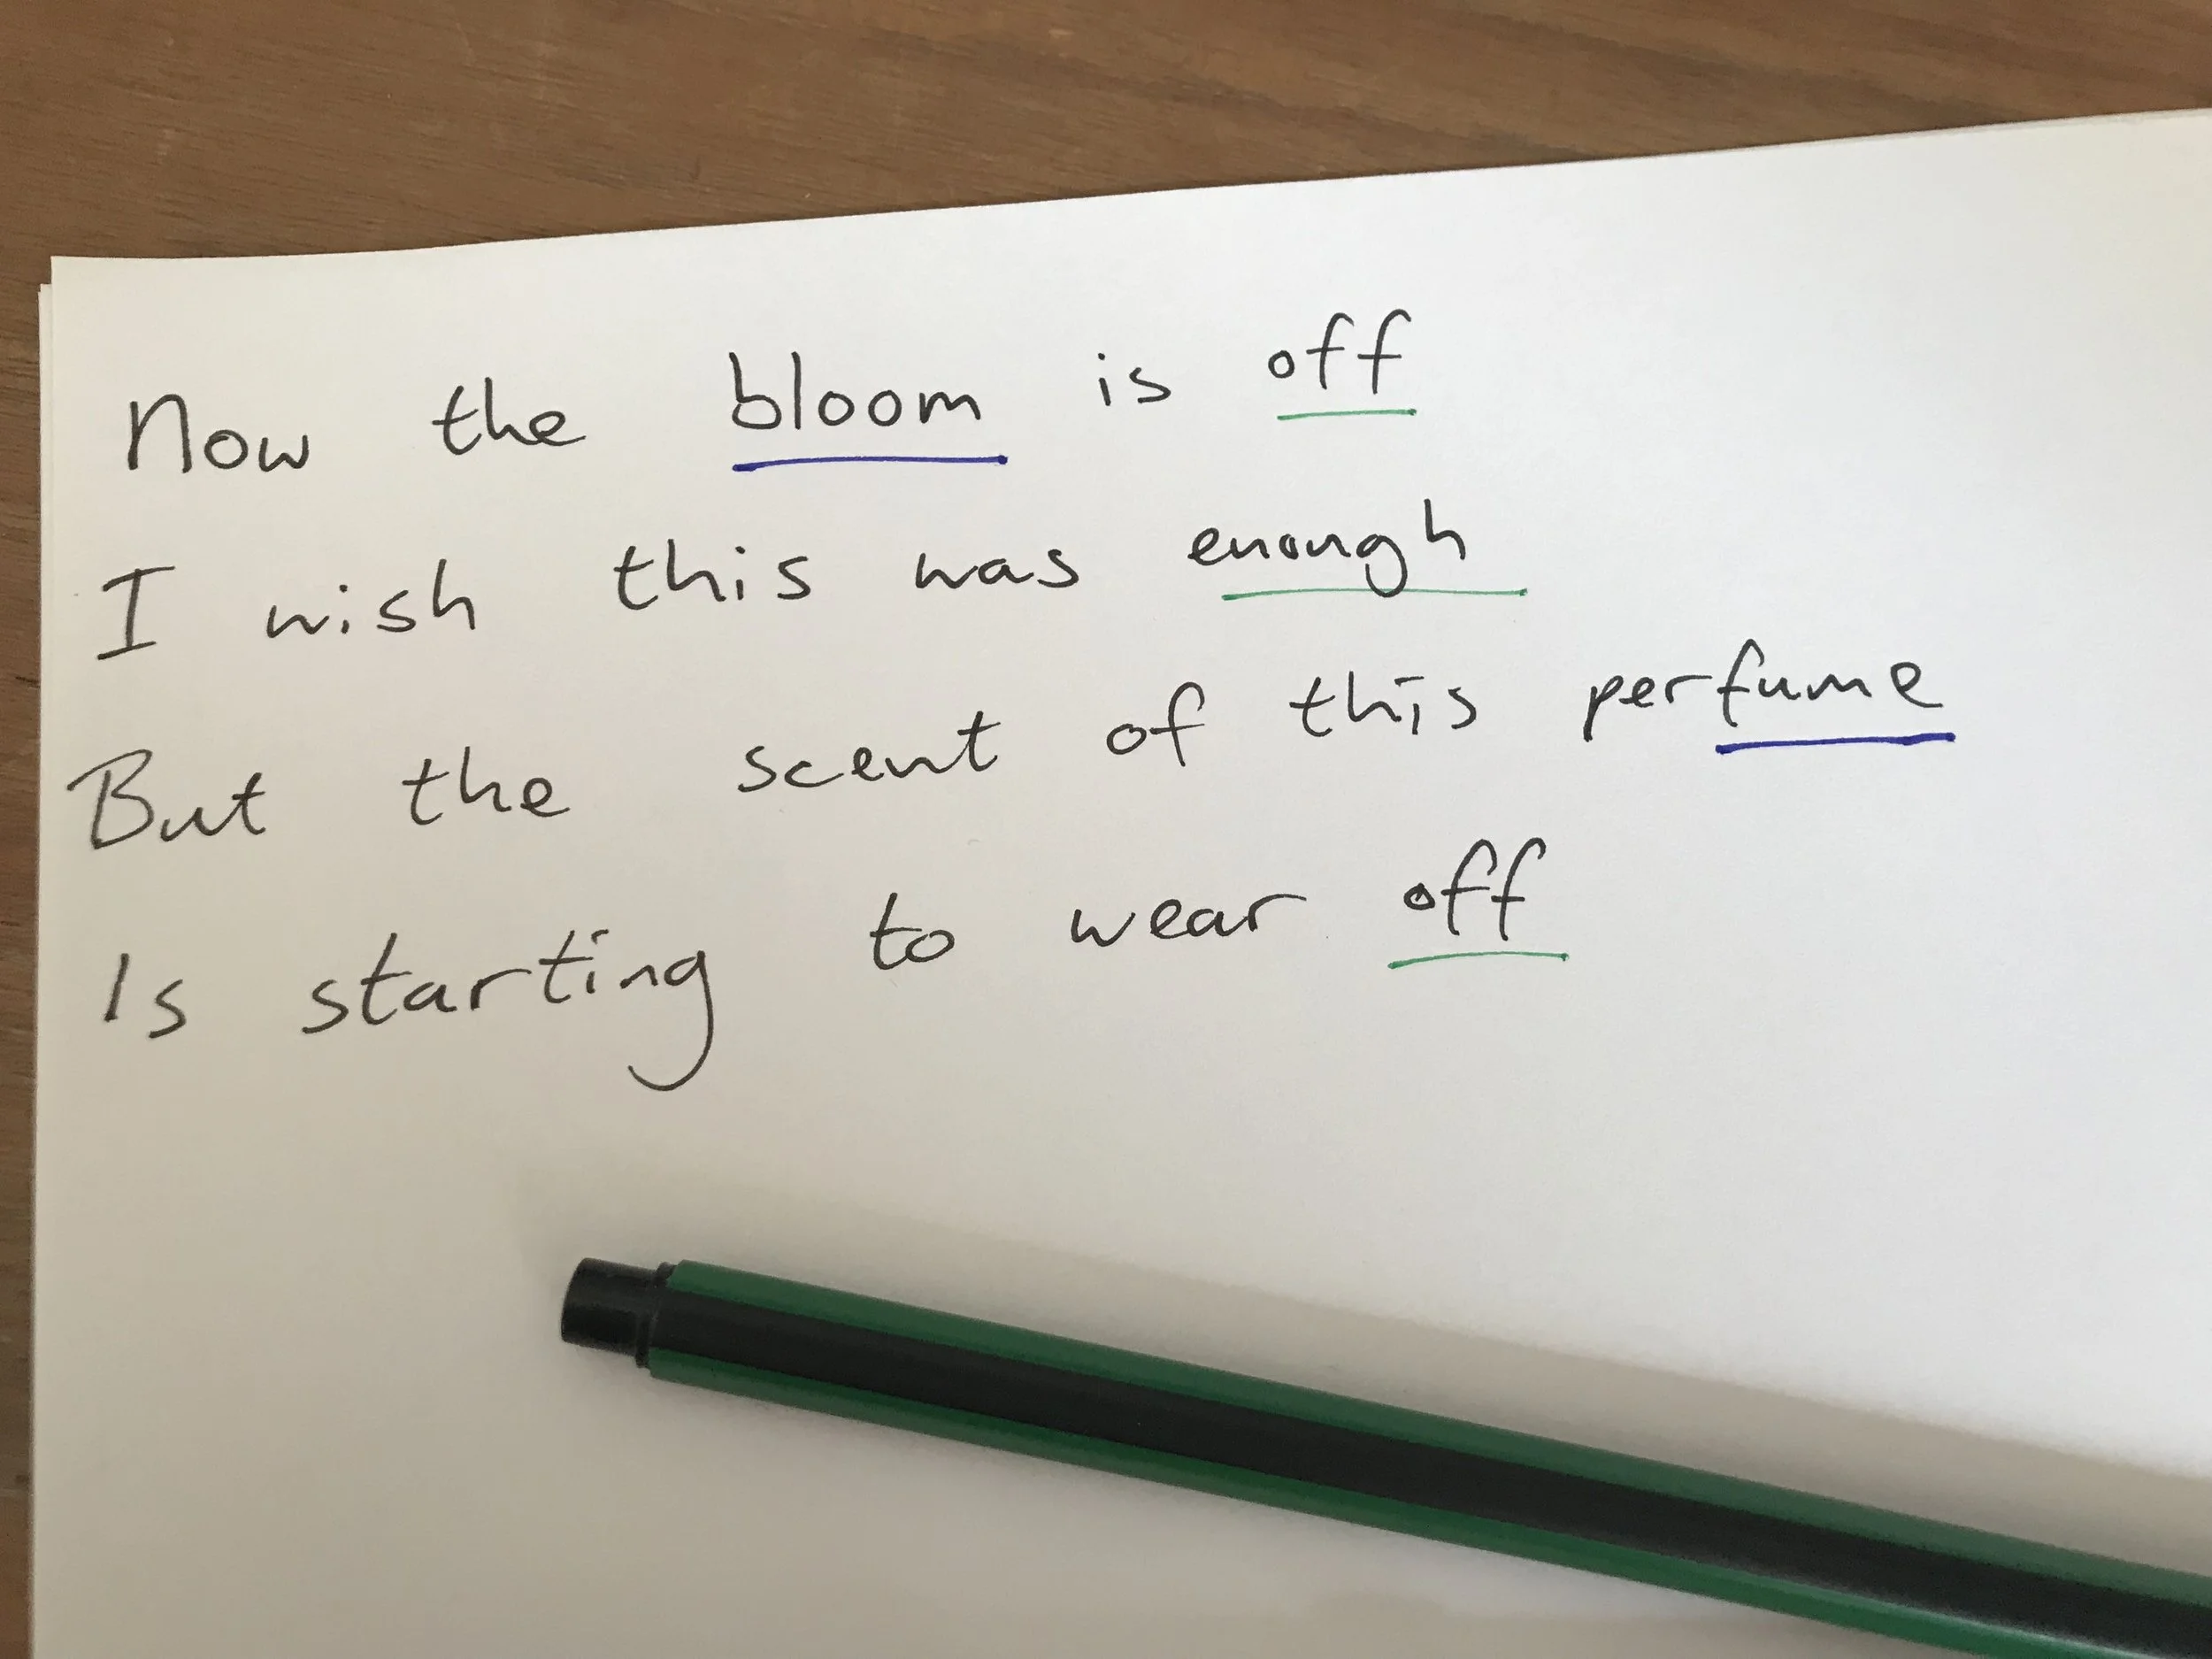 Now the bloom is off
I wish this was enough
But the scent of this perfume
Is starting to wear off